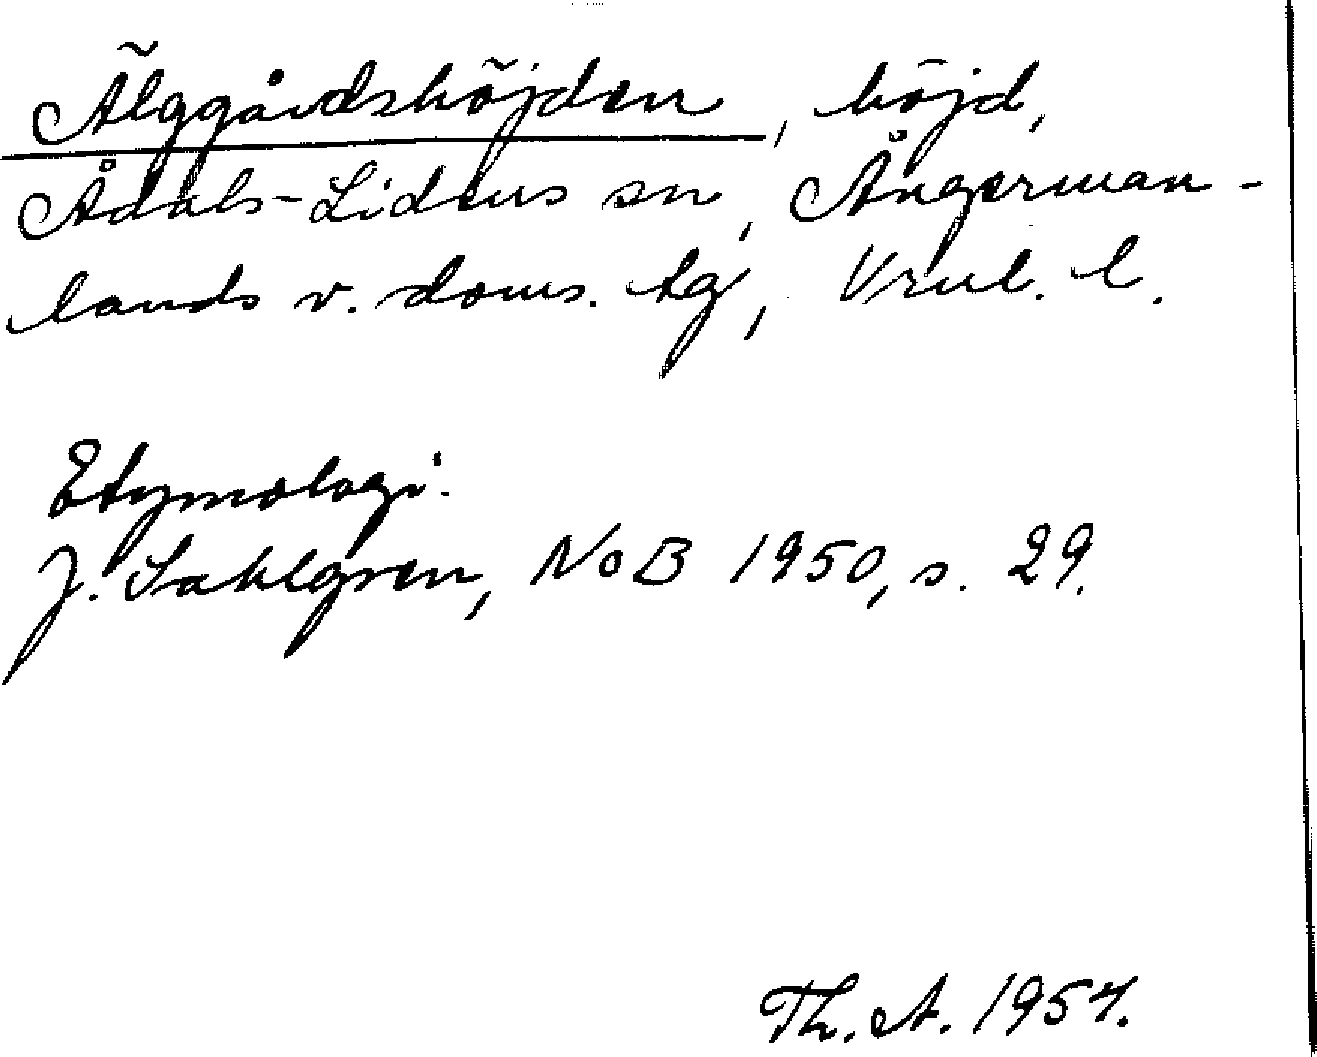 Älggårdshöjden, höjd,
Ådals-Lidens sn, Ångerman-
lands v. doms. tg, Vrnl. l.
Etymologi.
J. Sahlgren, NoB 1950, s. 29.
Th. A. 1954.